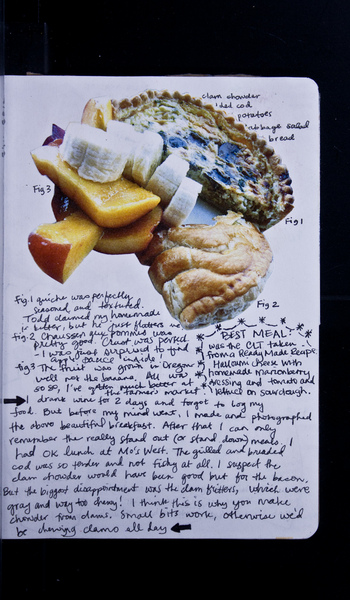 clam chowder
ded cod
potatoes
bbage salad
bread
Fig 3
Fig 1
Fig 2
Fig. 1 quiche was perfectly
seasoned and textured.
Todd claimed my homemade
is better, but he just flatters me
fig. 2 Chausson aux pommes was
pretty good. Crust was perfect
- I was just surprised to find
apple sauce inside!
fig. 3 The fruit was grown in Oregon
well not the banana. All was
so so, I've gotten much better at
the farmer's market.
BEST MEAL:
was the CLT taken
from a ReadyMade Recipe.
Halloumi cheese with
homemade marionberry
dressing and tomato and
lettuce on sourdough.
I drank wine for 2 days and forgot to log my
food. But before my mind went, I made and photographed
the above beautiful breakfast. After that I can only
remember the really stand out (or stand down) meals. I
had OK lunch at Mo's West. The grilled and breaded
cod was so tender and not fishy at all. I suspect the
clam chowder would have been good but for the bacon.
But the biggest disappointment was the clam fritters, which were
gray and way too chewy! I think this is why you make
chowder from clams. Small bits work, otherwise we'd
be chewing clams all day